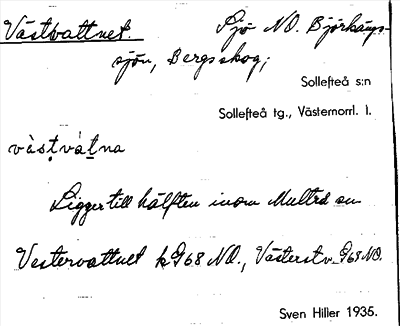 Västvattnet. Sjö NO. Björkängs-
sjön, Bergsskog;
Sollefteå s:n
Sollefteå tg., Västernorrl. l.
vàs̩tvàt̲na
Ligger till hälften inom Multrå sn
Vestervattnet k G68 NO., Västerstv. G68 NO.
Sven Hiller 1935.